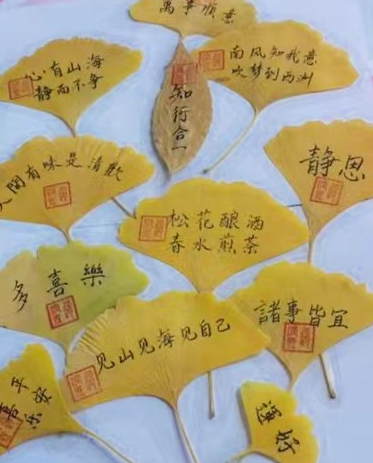 萬事順意
心有山海
静而不争
南风知我意
吹梦到西洲
知行合一
人間有味是清歡
静思
松花酿酒
春水煎茶
多喜樂
諸事皆宜
见山见海见自己
平安
喜乐
遇好